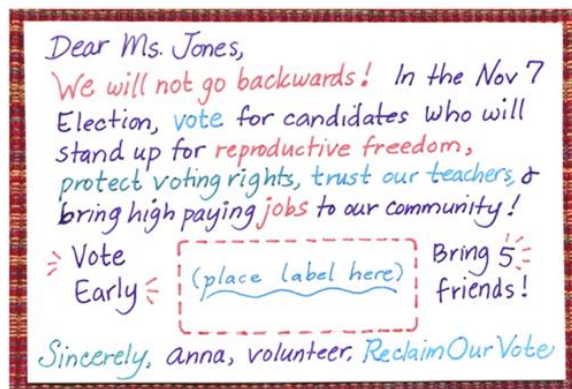 Dear Ms. Jones,
We will not go backwards! In the Nov 7
Election, vote for candidates who will
stand up for reproductive freedom,
protect voting rights, trust our teachers, &
bring high paying jobs to our community!
Vote
Early
(place label here)
Bring 5
friends!
Sincerely, anna, volunteer, Reclaim Our Vote